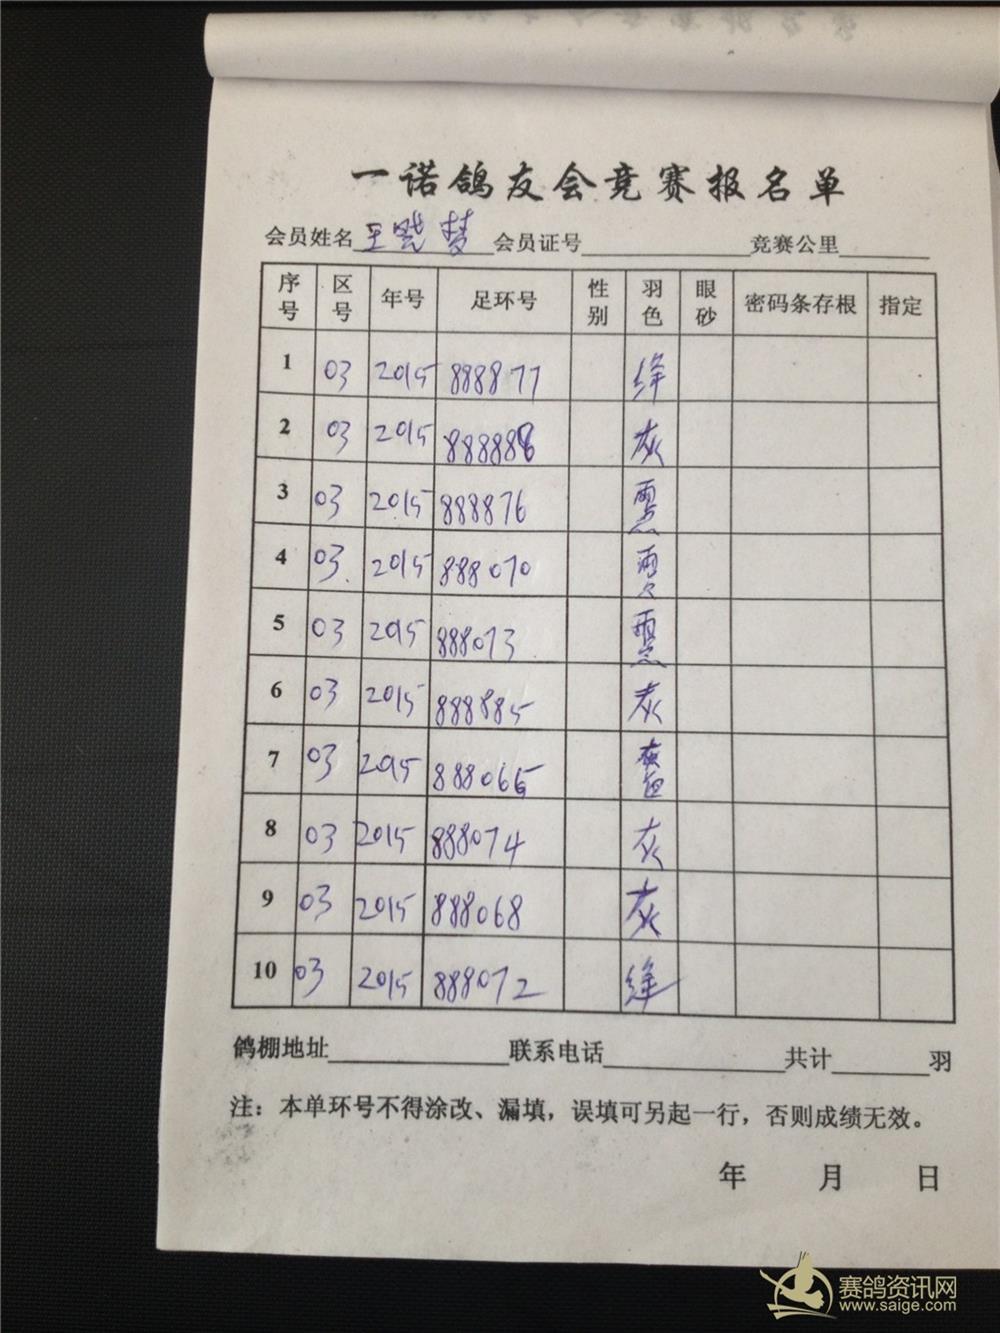 一诺鸽友会竞赛报名单
会员姓名 王晓梦 会员证号 竞赛公里
序号 区号 年号 足环号 性别 羽色 眼砂 密码条存根 指定
1 03 2015 888877 绛
2 03 2015 888888 灰
3 03 2015 888876
4 03 2015 888070
5 03 2015 888073
6 03 2015 888885 灰
7 03 2015
8 03 2015 888074 灰
9 03 2015 888068 灰
10 03 2015 888072 绛
鸽棚地址 联系电话 共计 羽
注：本单环号不得涂改、漏填，误填可另起一行，否则成绩无效。
年 月 日
赛鸽资讯网
www.saige.com